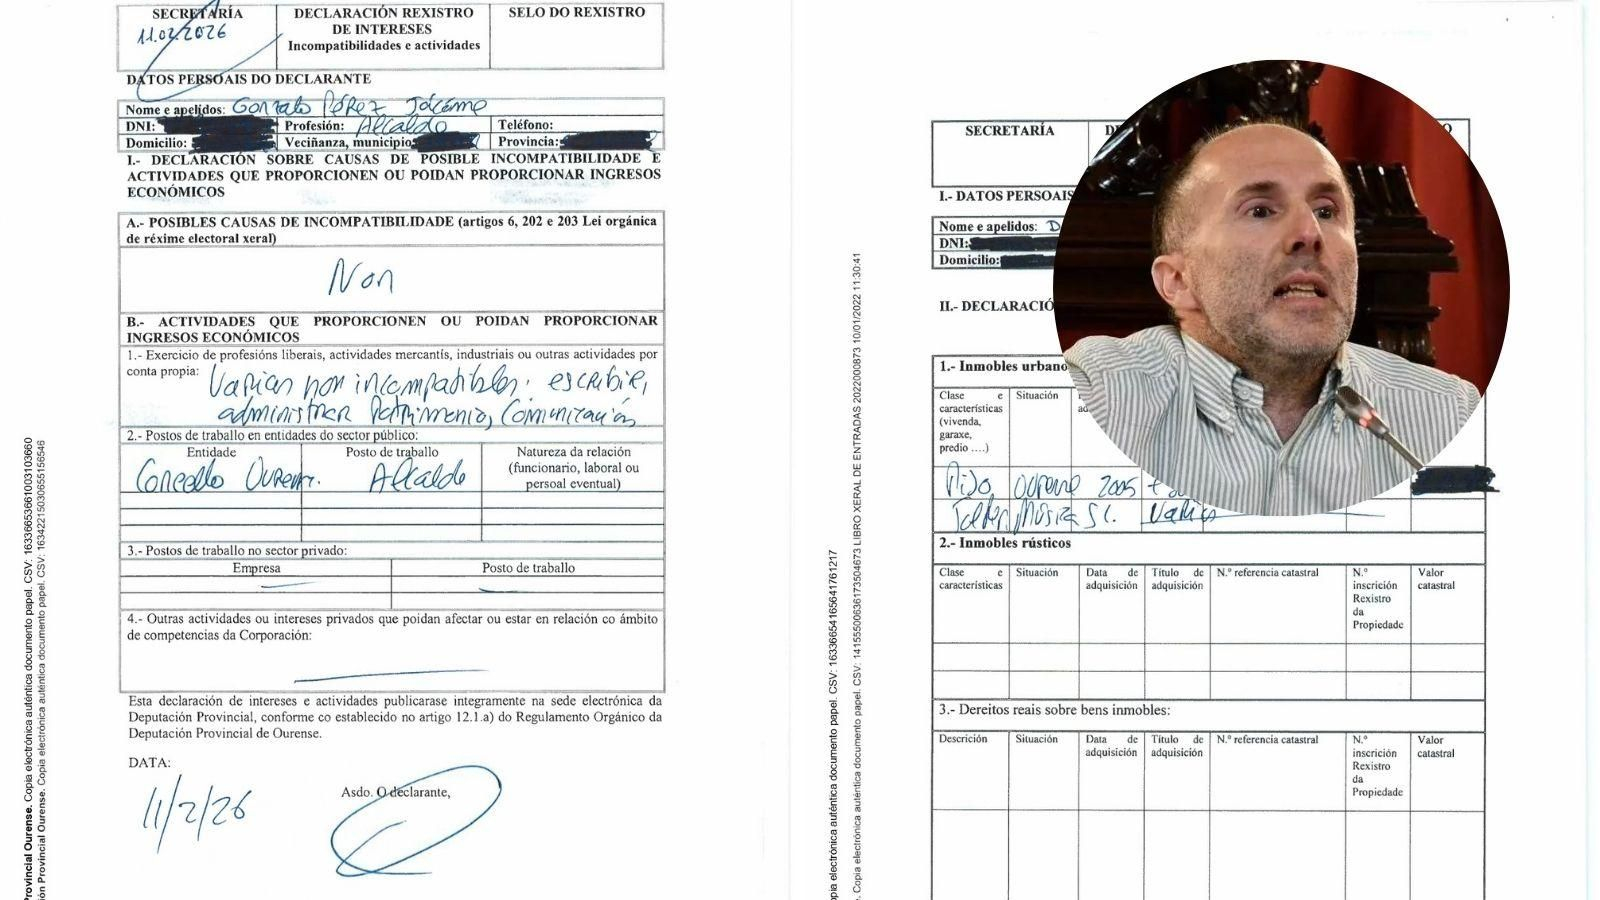 SECRETARÍA
11.02.2026
DECLARACIÓN REXISTRO
DE INTERESES
Incompatibilidades e actividades
SELO DO REXISTRO
DATOS PERSOAIS DO DECLARANTE
Nome e apelidos: Gonzalo Pérez Jácome
DNI: Profesión: Alcalde Teléfono:
Domicilio: Veciñanza, municipio Provincia:
I.- DECLARACIÓN SOBRE CAUSAS DE POSIBLE INCOMPATIBILIDADE E
ACTIVIDADES QUE PROPORCIONEN OU POIDAN PROPORCIONAR INGRESOS
ECONÓMICOS
A.- POSIBLES CAUSAS DE INCOMPATIBILIDADE (artigos 6, 202 e 203 Lei orgánica
de réxime electoral xeral)
Non
B.- ACTIVIDADES QUE PROPORCIONEN OU POIDAN PROPORCIONAR
INGRESOS ECONÓMICOS
1.- Exercicio de profesións liberais, actividades mercantís, industriais ou outras actividades por
conta propia: Varias non incompatibles: escribir,
administrar Patrimonio, Comunicación
2.- Postos de traballo en entidades do sector público:
Entidade Posto de traballo Natureza da relación
(funcionario, laboral ou
persoal eventual)
Concello Ourense. Alcalde
3.- Postos de traballo no sector privado:
Empresa Posto de traballo
4.- Outras actividades ou intereses privados que poidan afectar ou estar en relación co ámbito
de competencias da Corporación:
Esta declaración de intereses e actividades publicarase integramente na sede electrónica da
Deputación Provincial, conforme co establecido no artigo 12.1.a) do Regulamento Orgánico da
Deputación Provincial de Ourense.
DATA:
11/2/26
Asdo. O declarante,
Provincial Ourense. Copia electrónica auténtica documento papel. CSV: 16336653661003103660
ón Provincial Ourense. Copia electrónica auténtica documento papel. CSV: 16342215030655156546
SECRETARÍA
I.- DATOS PERSOAIS
Nome e apelidos: D
DNI:
Domicilio:
II.- DECLARACIÓ
1.- Inmobles urbano
Clase e
características
(vivenda,
garaxe,
predio ....)
Situación
ad
Piso Ourense 2005
Taller Música S.C. Varios
2.- Inmobles rústicos
Clase e
características
Situación
Data de
adquisición
Título de
adquisición
N.º referencia catastral
N.º
inscrición
Rexistro
da
Propiedade
Valor
catastral
3.- Dereitos reais sobre bens inmobles:
Descrición
Situación
Data de
adquisición
Título de
adquisición
N.º referencia catastral
N.º
inscrición
Rexistro
da
Propiedade
Valor
catastral
opia electrónica auténtica documento papel. CSV: 16336654165641761217
e. Copia electrónica auténtica documento papel. CSV: 14155500636173504673 LIBRO XERAL DE ENTRADAS 2022000873 10/01/2022 11:30:41